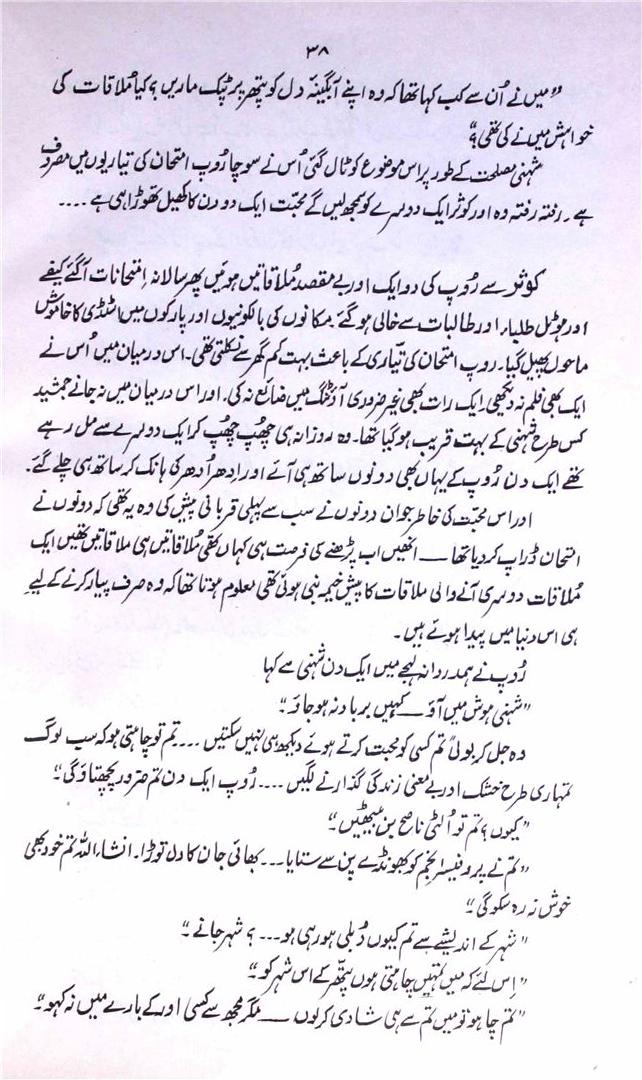 ۳۸
"میں نے اُن سے کب کہا تھا کہ وہ اپنے آبگینۂ دل کو پتھر پر ٹپک ماریں؟ کیا مُلاقات کی
خواہش میں نے کی تھی؟"
شہنی مصلحت کے طور پر اس موضوع کو ٹال گئی اُس نے سوچا رُوپ امتحان کی تیاریوں میں مصروف
ہے۔ رفتہ رفتہ وہ اور کوثر ایک دوسرے کو سمجھ لیں گے محبت ایک دو دن کا کھیل تھوڑا ہی ہے ....
کوثر سے رُوپ کی دو ایک اور بے مقصد مُلاقاتیں ہوئیں پھر سالانہ امتحانات آگئے کیفے
اور ہوٹل طلباء اور طالبات سے خالی ہو گئے۔ مکانوں کی بالکونیوں اور پارکوں میں اسٹڈی کا خاموش
ماحول پھیل گیا۔ روپ امتحان کی تیّاری کے باعث بہت کم گھر سے نکلتی تھی۔ اس درمیان میں اُس نے
ایک بھی فلم نہ دیکھی، ایک رات بھی غیر ضروری آؤٹنگ میں ضائع نہ کی۔ اور اس درمیان میں نہ جانے جمشید
کس طرح شہنی کے بہت قریب ہو گیا تھا۔ وہ روزانہ ہی چھُپ چھُپ کر ایک دوسرے سے مل رہے
تھے ایک دن رُوپ کے یہاں بھی دونوں ساتھ ہی آئے اور اِدھر اُدھر کی ہانک کر ساتھ ہی چلے گئے۔
اور اس محبت کی خاطر جوان دونوں نے سب سے پہلی قربانی پیش کی وہ یہ تھی کہ دونوں نے
امتحان ڈراپ کر دیا تھا — انھیں اب پڑھنے کی فرصت ہی کہاں تھی مُلاقاتیں ہی ملاقاتیں تھیں ایک
مُلاقات دوسری آنے والی ملاقات کا پیش خیمہ بنی ہوئی تھی معلوم ہوتا تھا کہ وہ صرف پیار کرنے کے لیے
ہی اس دنیا میں پیدا ہوئے ہیں۔
رُوپ نے ہمدردانہ لہجے میں ایک دن شہنی سے کہا
"شہنی ہوش میں آؤ — کہیں برباد نہ ہو جاؤ۔"
وہ جل کر بولی "تم کسی کو محبت کرتے ہوئے دیکھ ہی نہیں سکتیں ... تم تو چاہتی ہو کہ سب لوگ
تمہاری طرح خشک اور بے معنی زندگی گذارنے لگیں .... رُوپ ایک دن تم ضرور پچھتاؤ گی۔"
"کیوں؟ تم تو اُلٹی ناصح بن بیٹھیں۔"
"تم نے پروفیسر انجم کو بھونڈے پن سے ستایا ... بھائی جان کا دل توڑا۔ انشاء اللہ تم خود بھی
خوش نہ رہ سکو گی۔"
"شہر کے اندیشے سے تم کیوں دُبلی ہو رہی ہو ...؟ شہر جانے۔"
"اِس لئے کہ میں تمہیں چاہتی ہوں پتّھر کے اس شہر کو۔"
"تم چاہو تو میں تم سے ہی شادی کر لوں — مگر مجھ سے کسی اور کے بارے میں نہ کہو۔"